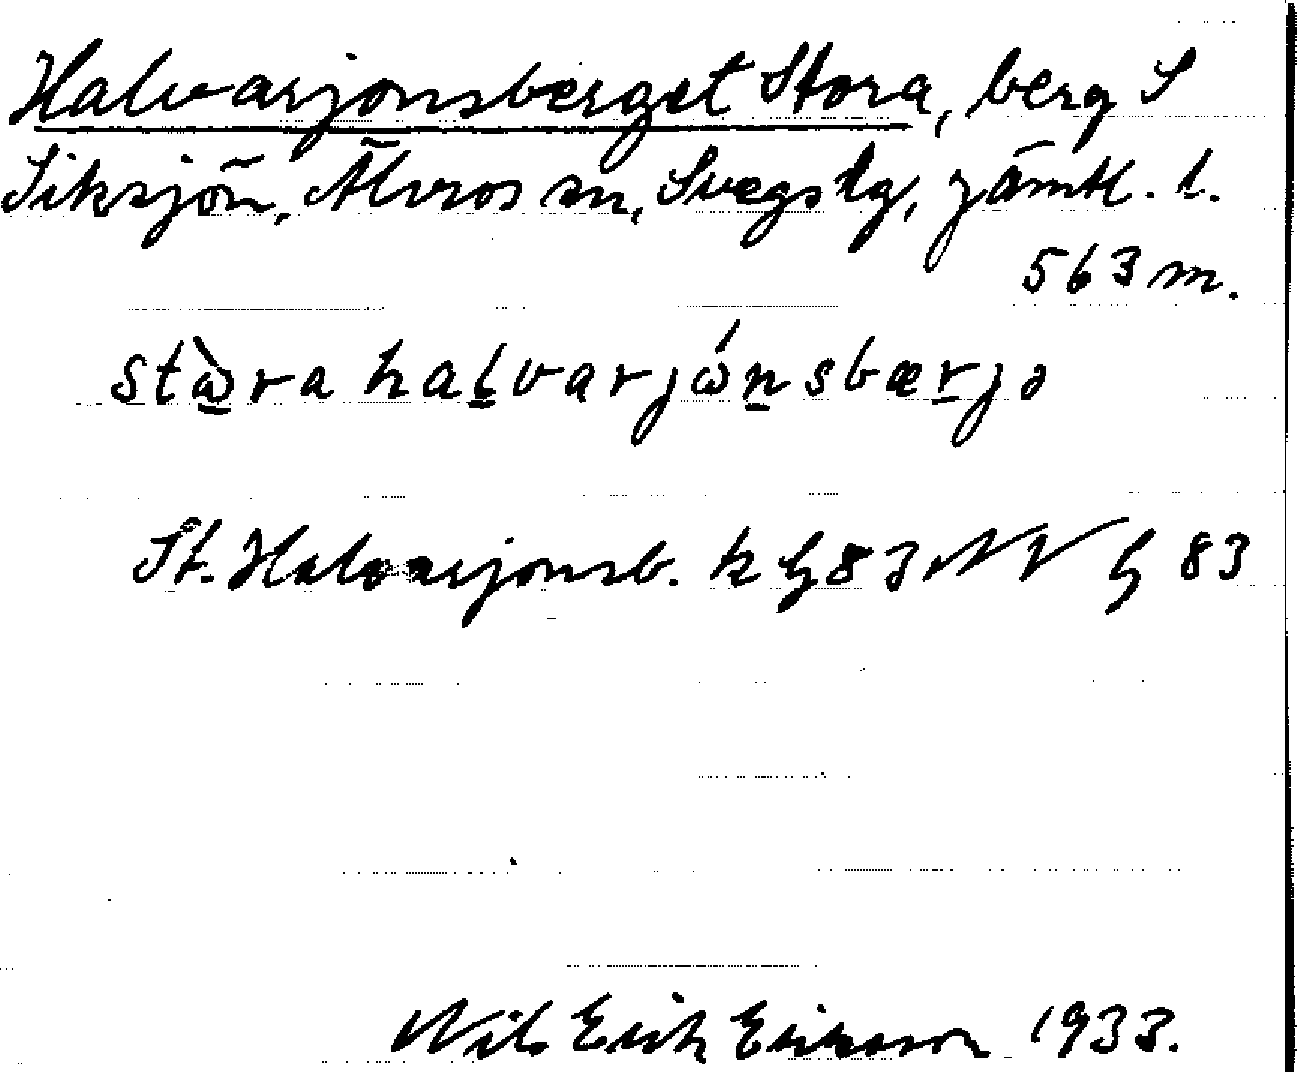 Halvarjonsberget Stora, berg S
Siksjön, Älvros sn, Svegs tg, Jämtl. l.
563 m.
stɷ̀ra halvarjɷ́nsbærjə
St. Halvarjonsb. k G 83 NV G 83
Nils Erik Eriksson 1933.